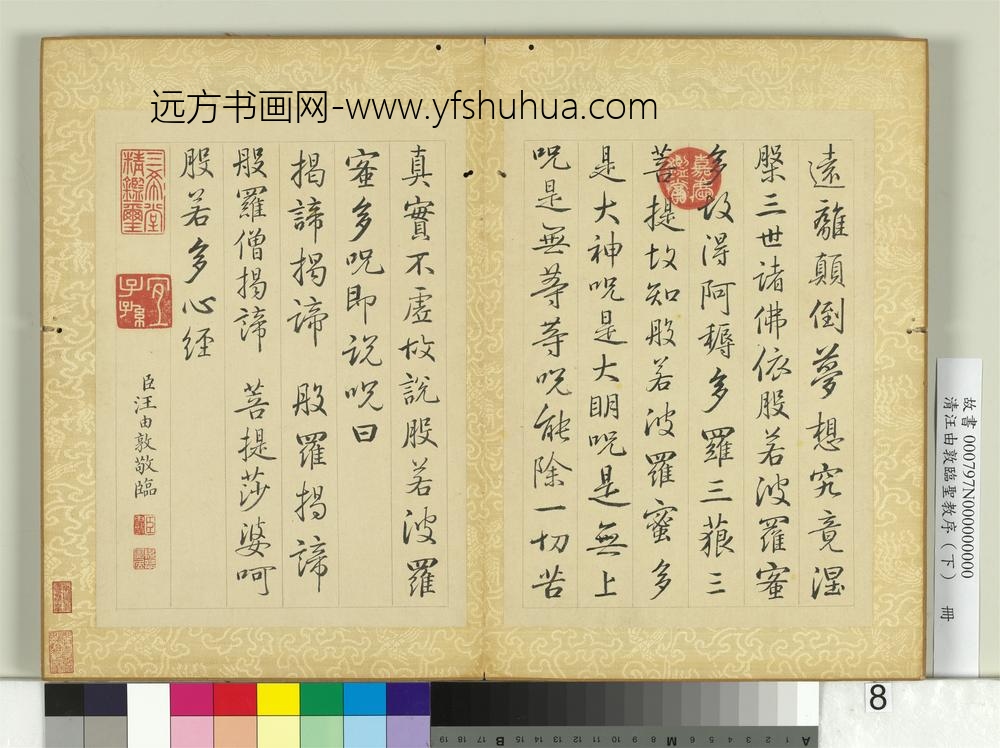 远方书画网-www.yfshuhua.com
遠離顛倒夢想究竟涅
槃三世諸佛依般若波羅蜜
多故得阿耨多羅三藐三
菩提故知般若波羅蜜多
是大神呪是大明呪是無上
呪是無等等呪能除一切苦
嘉慶鑑賞
真實不虛故說般若波羅
蜜多呪即說呪曰
揭諦揭諦 般羅揭諦
般羅僧揭諦 菩提莎婆呵
般若多心經
三希堂精鑑璽
宜子孫
臣汪由敦敬臨
故書 000797N000000000
清汪由敦臨聖教序(下) 冊
8
A 1 2 3 4 5 6 M 8 9 10 11 12 13 14 15 B 17 18 19